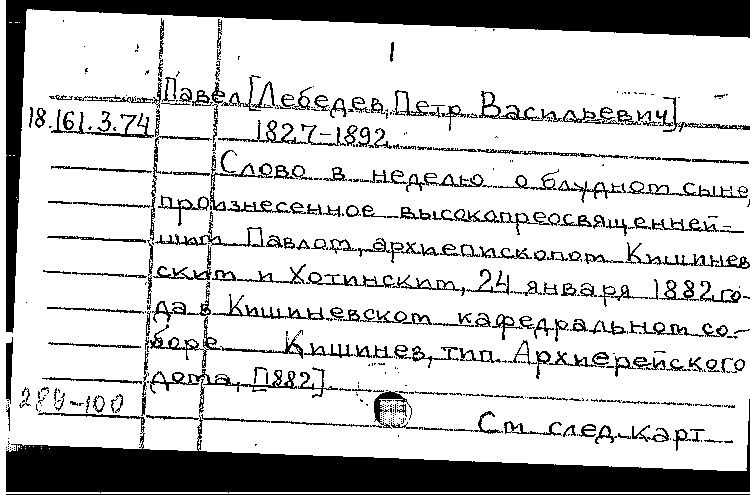 1
Павел [Лебедев, Петр Васильевич],
18.161.3.74
1827-1892
Слово в неделю о блудном сыне,
произнесенное высокопреосвященней-
шим Павлом, архиепископом Кишинев
ским и Хотинским, 24 января 1882 го-
да в Кишиневском кафедральном со-
боре. Кишинев, тип. Архиерейского
дома, [1882].
289-100
См след. карт